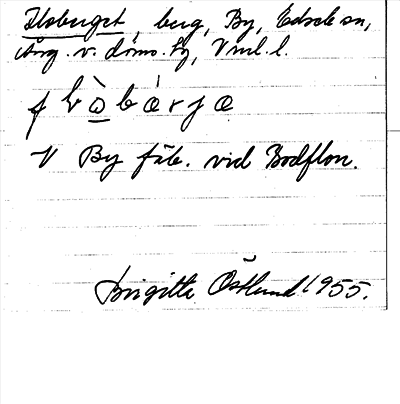 Floberget, berg, By, Edsele sn,
Ång. v. doms. hg, Vnl. l.
f l ò b æ r j æ
V By fäb. vid Bodflon.
Birgitta Östlund 1955.